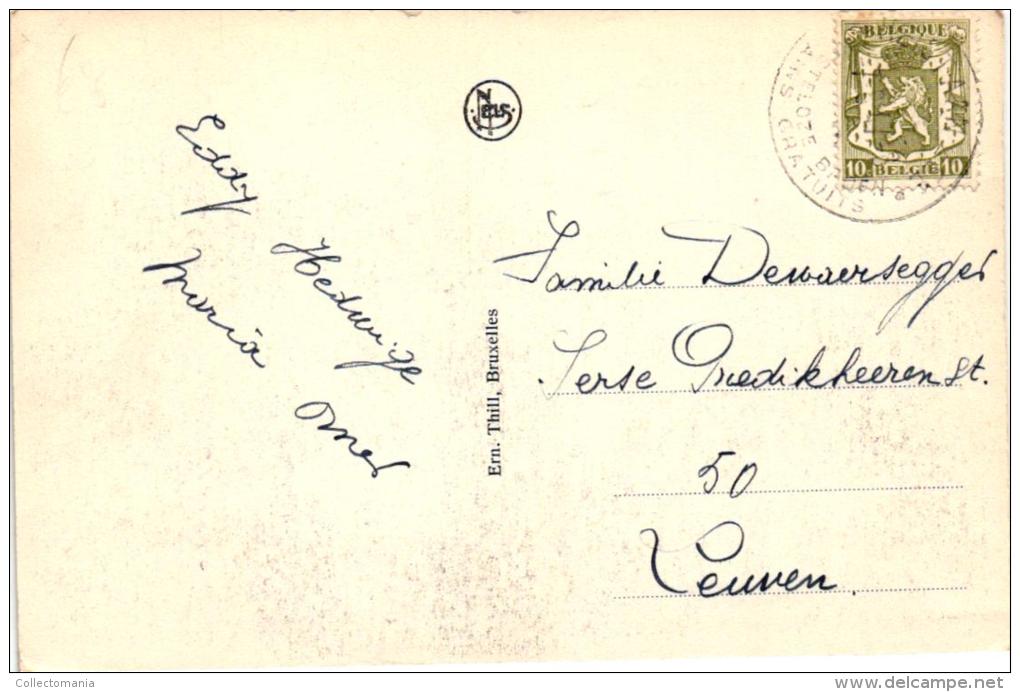 Eddy
Hedwige
Maria
Omer
NELS
Ern. Thill, Bruxelles
BELGIQUE
10c BELGIE 10c
GRATUITS
Familie Dewaersegger
Ierse Predikheerenst.
50
Leuven.
Collectomania
delcampe.net